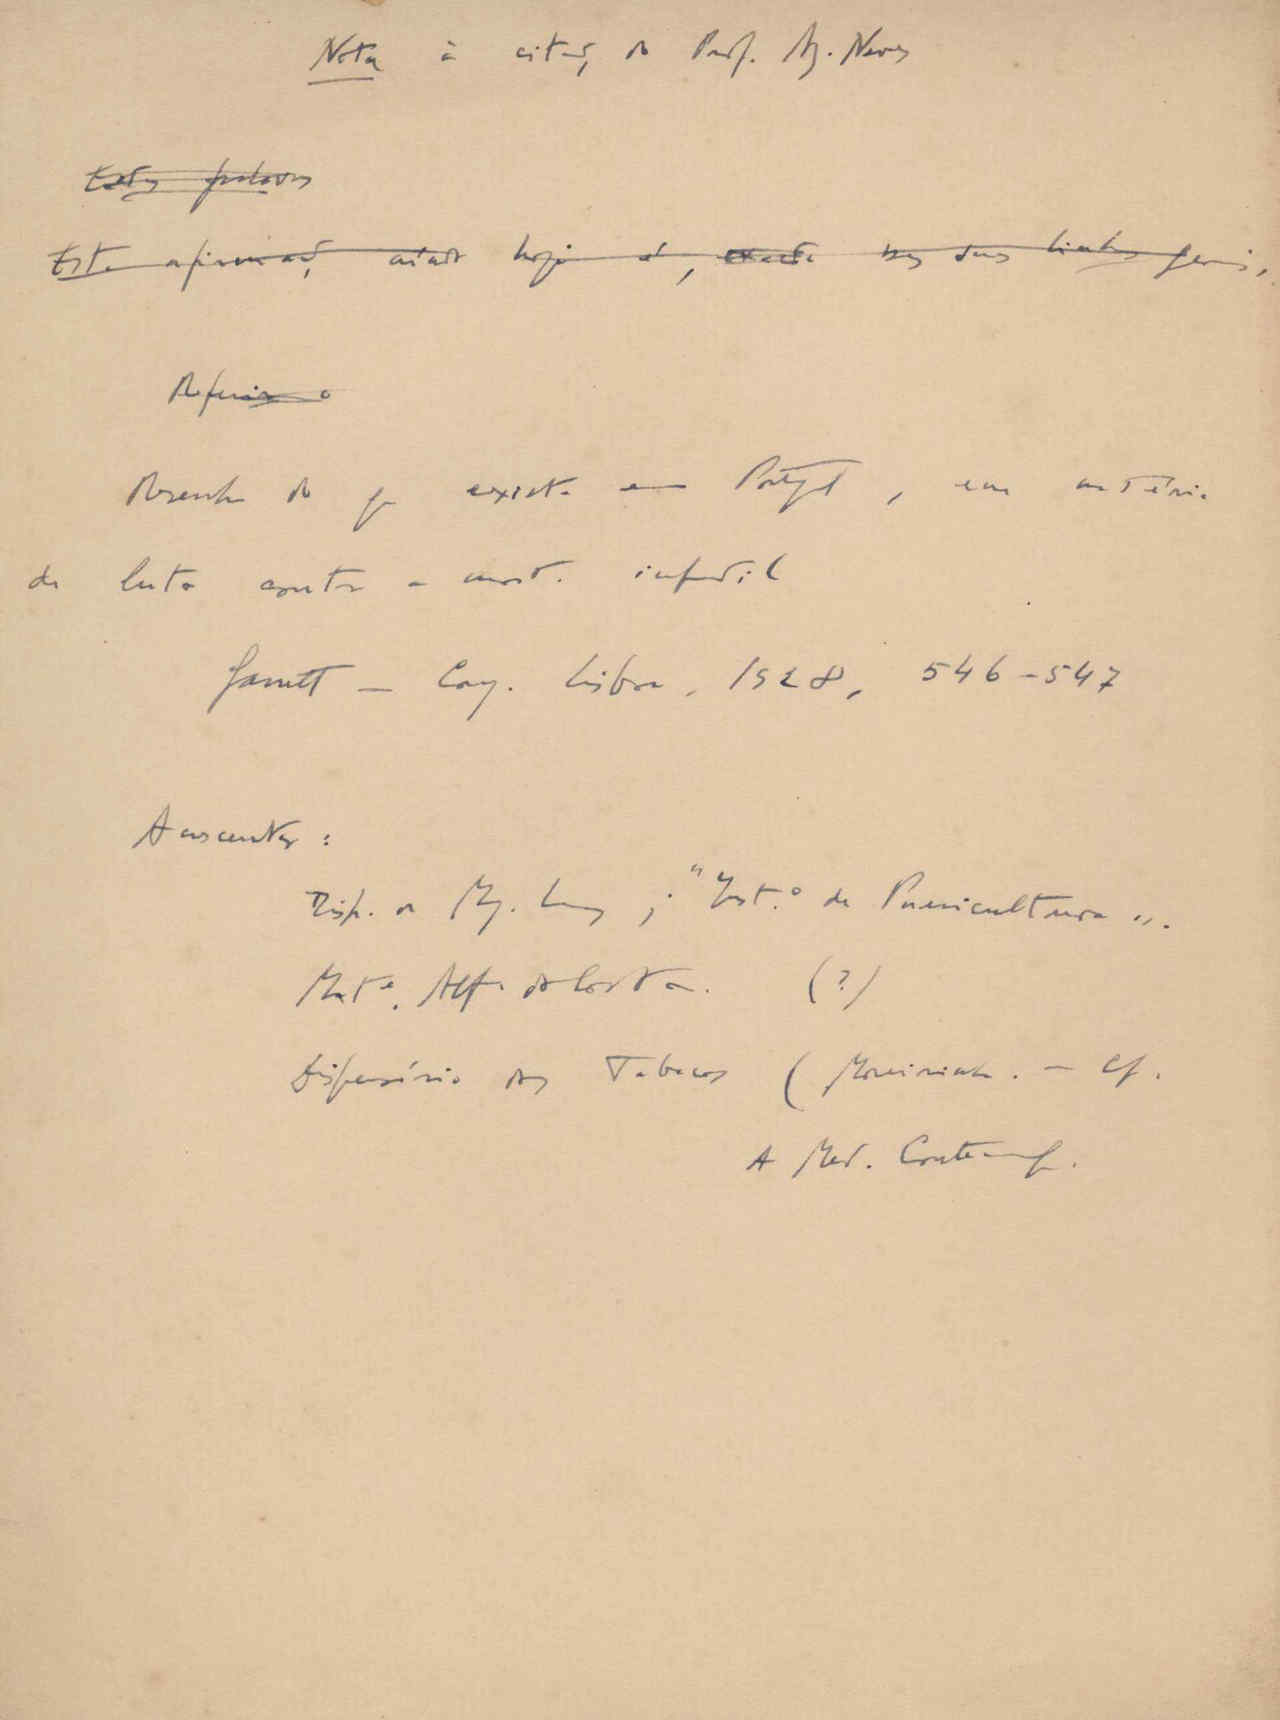 Nota à citaç, do Prof. Az. Neves
Estas palavras
Esta afirmaç, ainda hoje é, exacta nas suas linhas gerais,
Referir o
Resenha do q existe em Portgl, em matéria
de luta contra a mort. infantil
Garrett – Cong. Lisboa, 1928, 546-547
Acrescentar:
Disp. de ; "Inst.º de Puericultura".
Mat.e Alf. da Costa. (?)
Dispensário dos Tabacos ( – Cf.
A Med. Contemp.